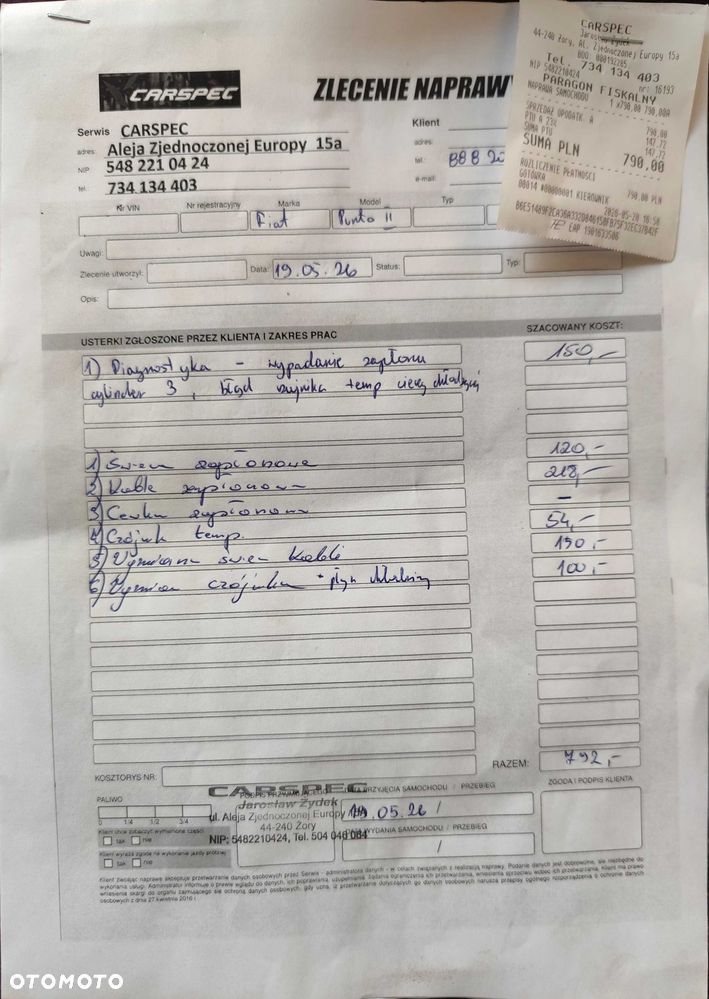 CARSPEC
ZLECENIE NAPRAWY
CARSPEC
44-240 Żory, Al. Zjednoczonej Europy 15a
BDO: 000192205
Tel. 734 134 403
NIP 5482210424 nr: 16193
PARAGON FISKALNY
NAPRAWA SAMOCHODU 1 x790,00 790,00A
SPRZEDAŻ OPODATK. A 790,00
PTU A 23% 147,72
SUMA PTU 147,72
SUMA PLN 790,00
ROZLICZENIE PŁATNOŚCI
GOTÓWKA 790,00 PLN
00014 #00000001 KIEROWNIK 2026-05-20 16:58
Serwis CARSPEC
adres: Aleja Zjednoczonej Europy 15a
NIP 548 221 04 24
tel. 734 134 403
Klient
adres:
tel.: 888 20
e-mail:
Nr VIN Nr rejestracyjny Marka Model Typ
Fiat Punto II
Uwagi:
Zlecenie utworzył: Data: 19.05.26 Status: Typ:
Opis:
USTERKI ZGŁOSZONE PRZEZ KLIENTA I ZAKRES PRAC SZACOWANY KOSZT:
1) Diagnostyka - wypadanie zapłonu 150,-
cylinder 3, błąd czujnika temp cieczy chłodzącej
1) Świece zapłonowe 120,-
2) Kable zapłonowe 218,-
3) Cewka zapłonowa -
4) Czójnik temp. 54,-
5) Wymiana świec Kabli 150,-
6) Wymiana czójnika + płyn chłodniczy 100,-
RAZEM: 792,-
KOSZTORYS NR:
PALIWO
0 1/4 1/2 3/4
CARSPEC
Jarosław Żydek
ul. Aleja Zjednoczonej Europy 15a
44-240 Żory
NIP: 5482210424, Tel. 504 046 064
DATA PRZYJĘCIA SAMOCHODU / PRZEBIEG
19.05.26 /
DATA WYDANIA SAMOCHODU / PRZEBIEG
/
ZGODA I PODPIS KLIENTA
Klient chce zobaczyć wymienione części
tak nie
Klient wyraża zgodę na wykonanie jazdy próbnej
tak nie
OTOMOTO